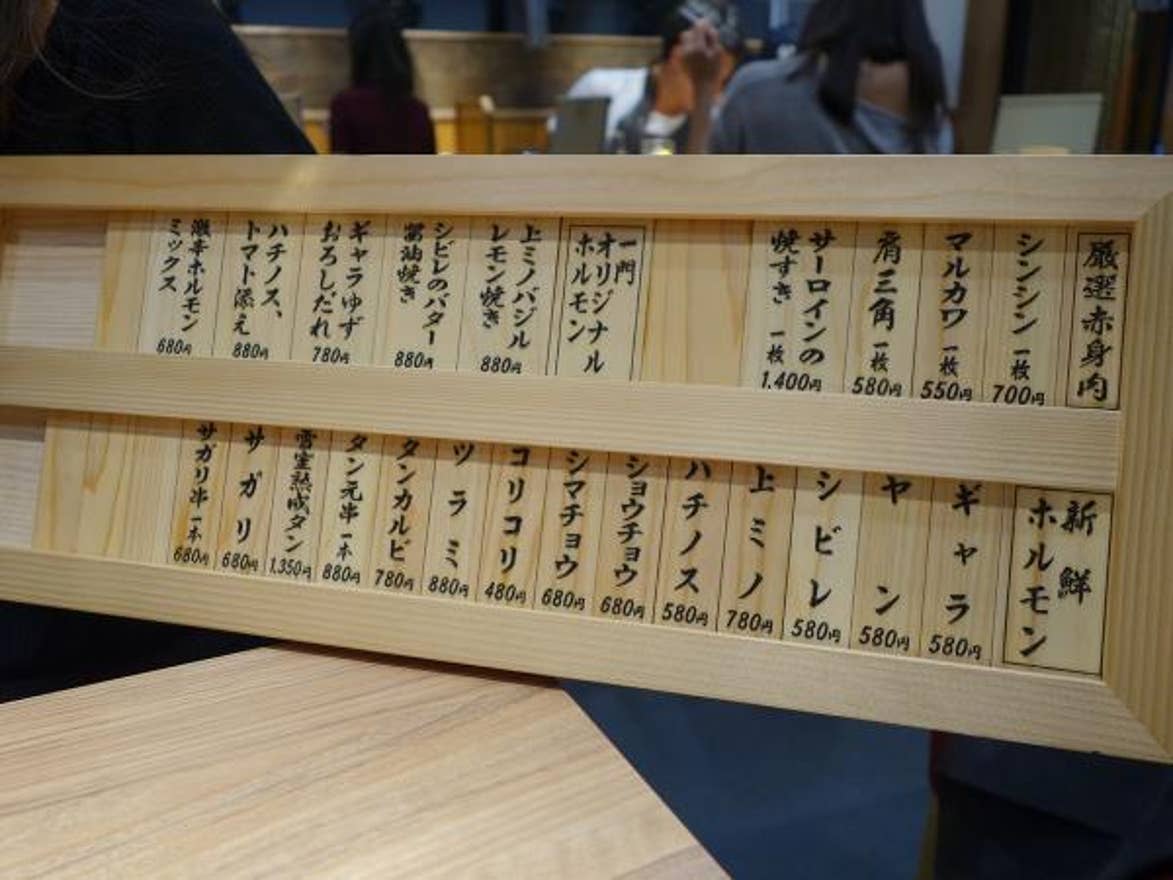 厳選赤身肉
シンシン 一枚 700円
マルカワ 一枚 550円
肩三角 一枚 580円
サーロインの
焼すき 一枚 1,400円
一門
オリジナル
ホルモン
上ミノバジル
レモン焼き 880円
シビレのバター
醤油焼き 880円
ギャラゆず
おろしだれ 780円
ハチノス、
トマト添え 880円
激辛ホルモン
ミックス 680円
新鮮
ホルモン
ギャラ 580円
ヤン 580円
シビレ 580円
上ミノ 780円
ハチノス 580円
ショウチョウ 680円
シマチョウ 680円
コリコリ 480円
ツラミ 880円
タンカルビ 780円
タン元串 一本 880円
雪室熟成タン 1,350円
サガリ 680円
サガリ串 一本 680円